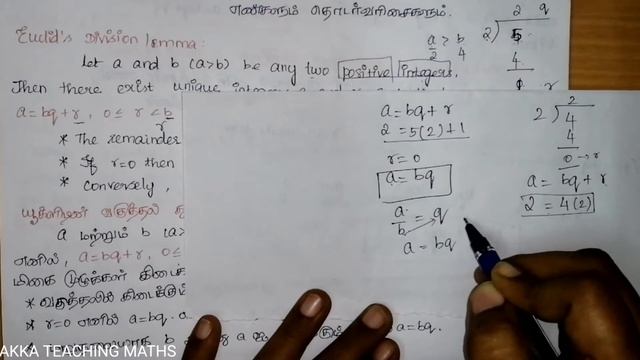 எண்களும் தொடர்வரிசைகளும்.
Euclid's Division lemma:
Let a and b (a>b) be any two positive integers.
Then there exist unique
a=bq+r, 0≤ r <b
r
* The remainder
* If r=0 then
* Conversely,
a மற்றும் b (a>
எனில், a=bq+r, 0≤
* r=0 எனில் a=bq.
a=bq.
a > b
2 4
2 q
2) 5
4
a=bq+r
2=5(2)+1
r=0
a=bq
a/b = q
a=bq
2
2) 4
4
0→r
a= bq+r
2 = 4(2)
AKKA TEACHING MATHS